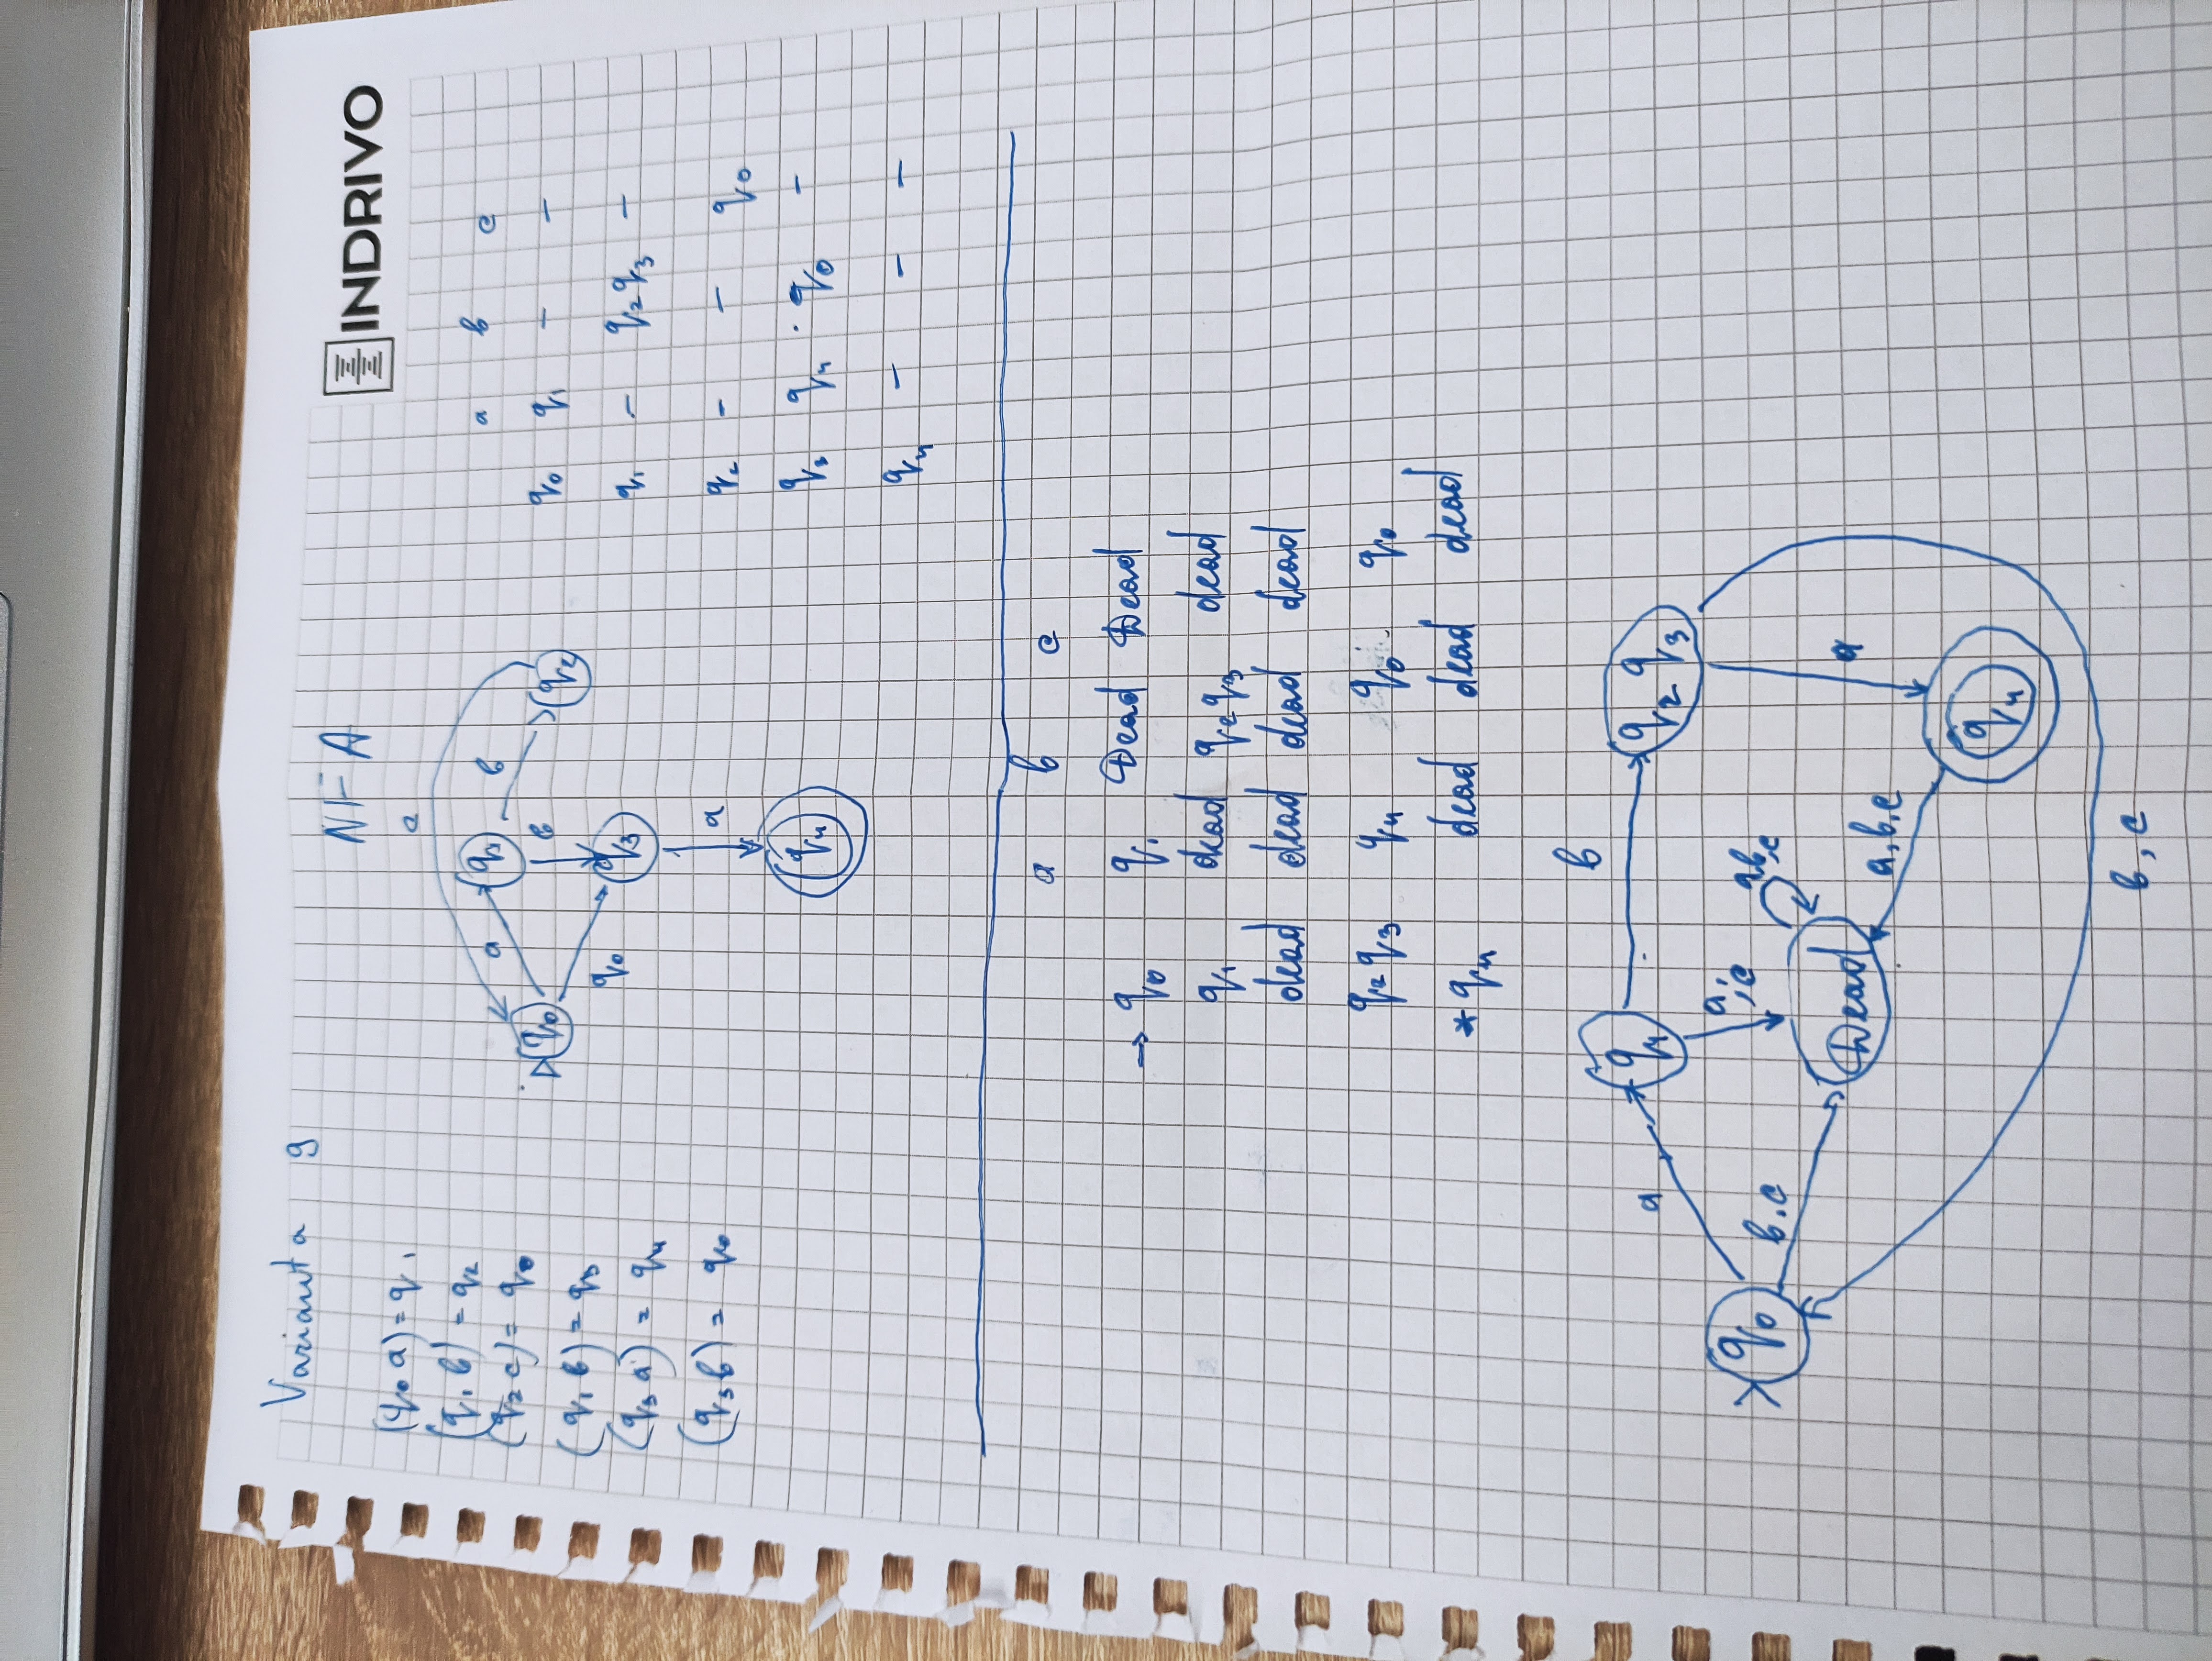 Varianta 9
NFA
INDRIVO
(q0 a) = q1
(q1 b) = q2
(q2 c) = q0
(q1 b) = q3
(q3 a) = q4
(q3 b) = q0
c
a
b
q1
q0
b
q2
q0
q3
a
q4
a b c
q0 q1 - -
q1 - q2 q3 -
q2 - - q0
q3 q4 q0 -
q4 - - -
a b c
→ q0 q1 Dead Dead
q1 dead q2 q3 dead
dead dead dead dead
q2 q3 q4 q0 q0
* q4 dead dead dead
b
q1
q2 q3
a
a, c
q0
b, c
a,b,c
Dead
a
a, b, c
q4
b, c